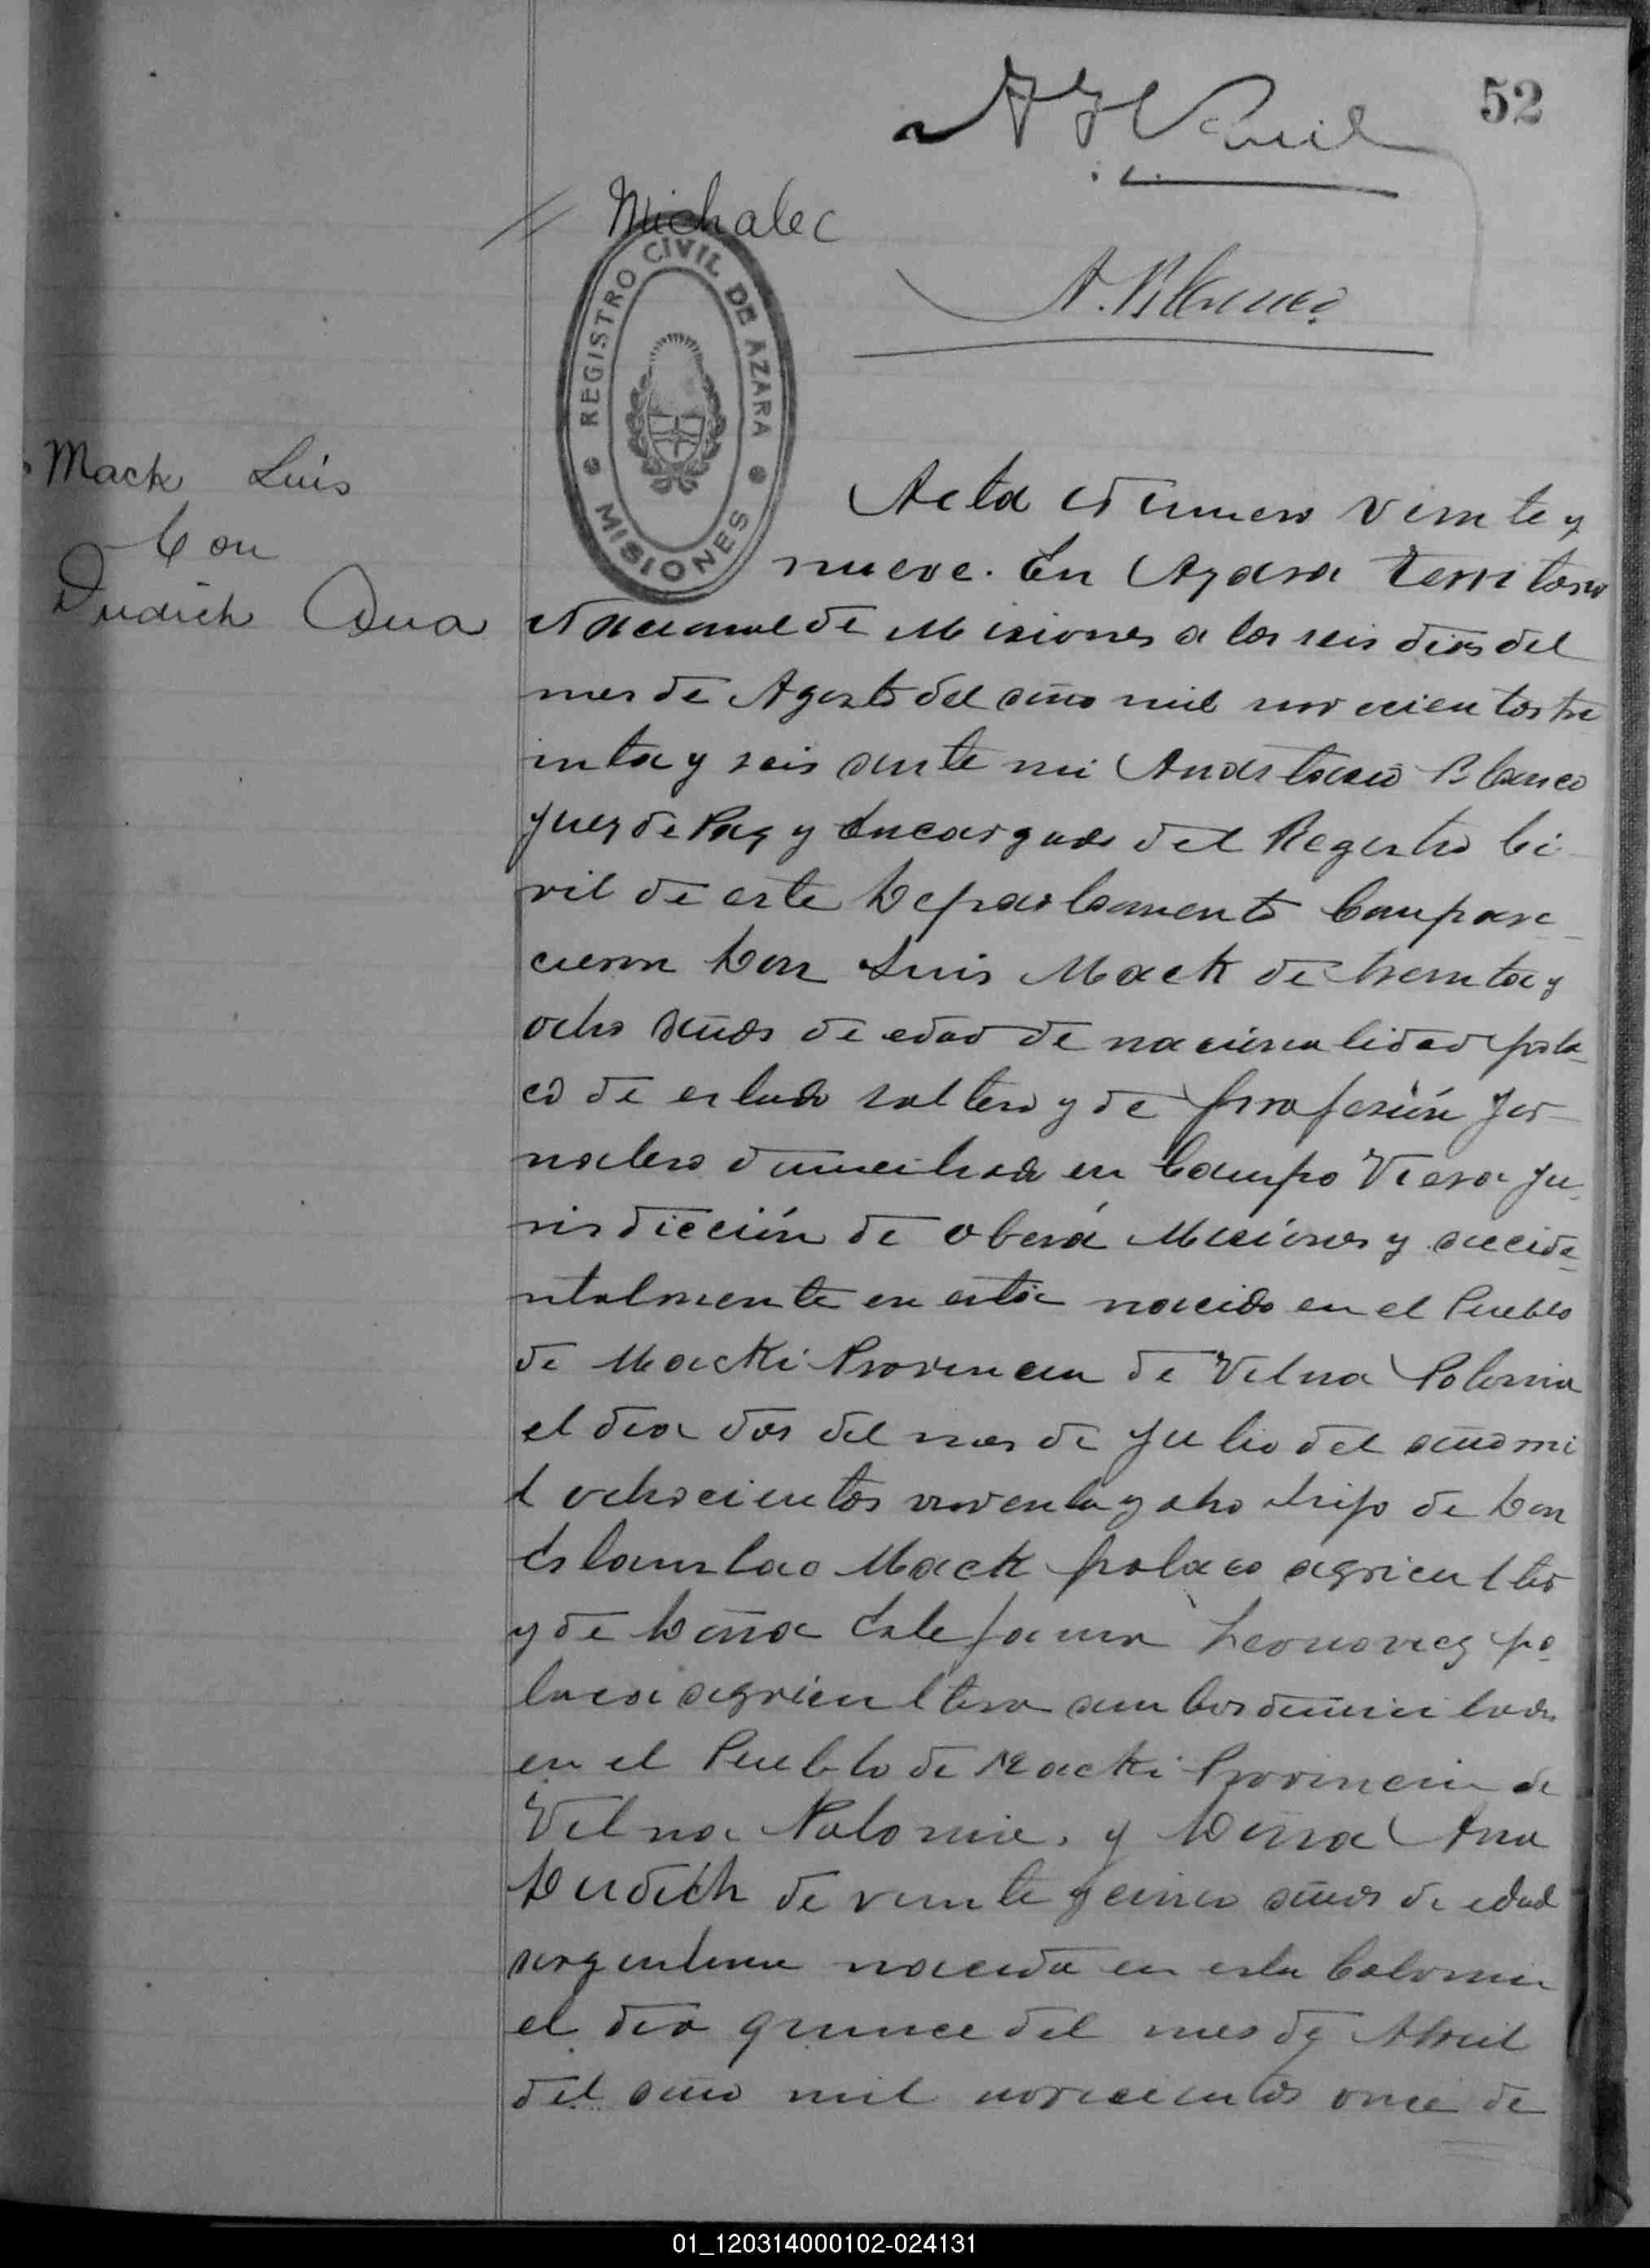 52
Michalec
A. Blanco
REGISTRO CIVIL DE AZARA
MISIONES
Mack Luis
Con
Dudich Ana
Acta Número veinte y
nueve. En Azara Territorio
Nacional de Misiones a los seis dias del
mes de Agosto del año mil novecientos tre
inta y seis ante mi Anastacio Blanco
Juez de Paz y Encargado del Registro Ci
vil de este Departamento Compare
cieron Don Luis Mack de treinta y
ocho años de edad de nacionalidad pola
co de estado soltero y de profesión jor
nalero domiciliado en Campo Viera Ju
risdicción de Oberá Misiones y accide
ntalmente en esta nacido en el Pueblo
de Macki Provincia de Vilna Polonia
el dia dos del mes de Julio del año mi
l ochocientos noventa y ocho hijo de Don
Eslanslao Mack polaco agricultor
y de Doña Estefania Leonovicz po
laca agricultora ambos domiciliados
en el Pueblo de Macki Provincia de
Vilna Polonia. y Doña Ana
Dudich de veinte y cinco años de edad
argentina nacida en esta Colonia
el dia quince del mes de Abril
del año mil novecientos once de
01_120314000102-024131